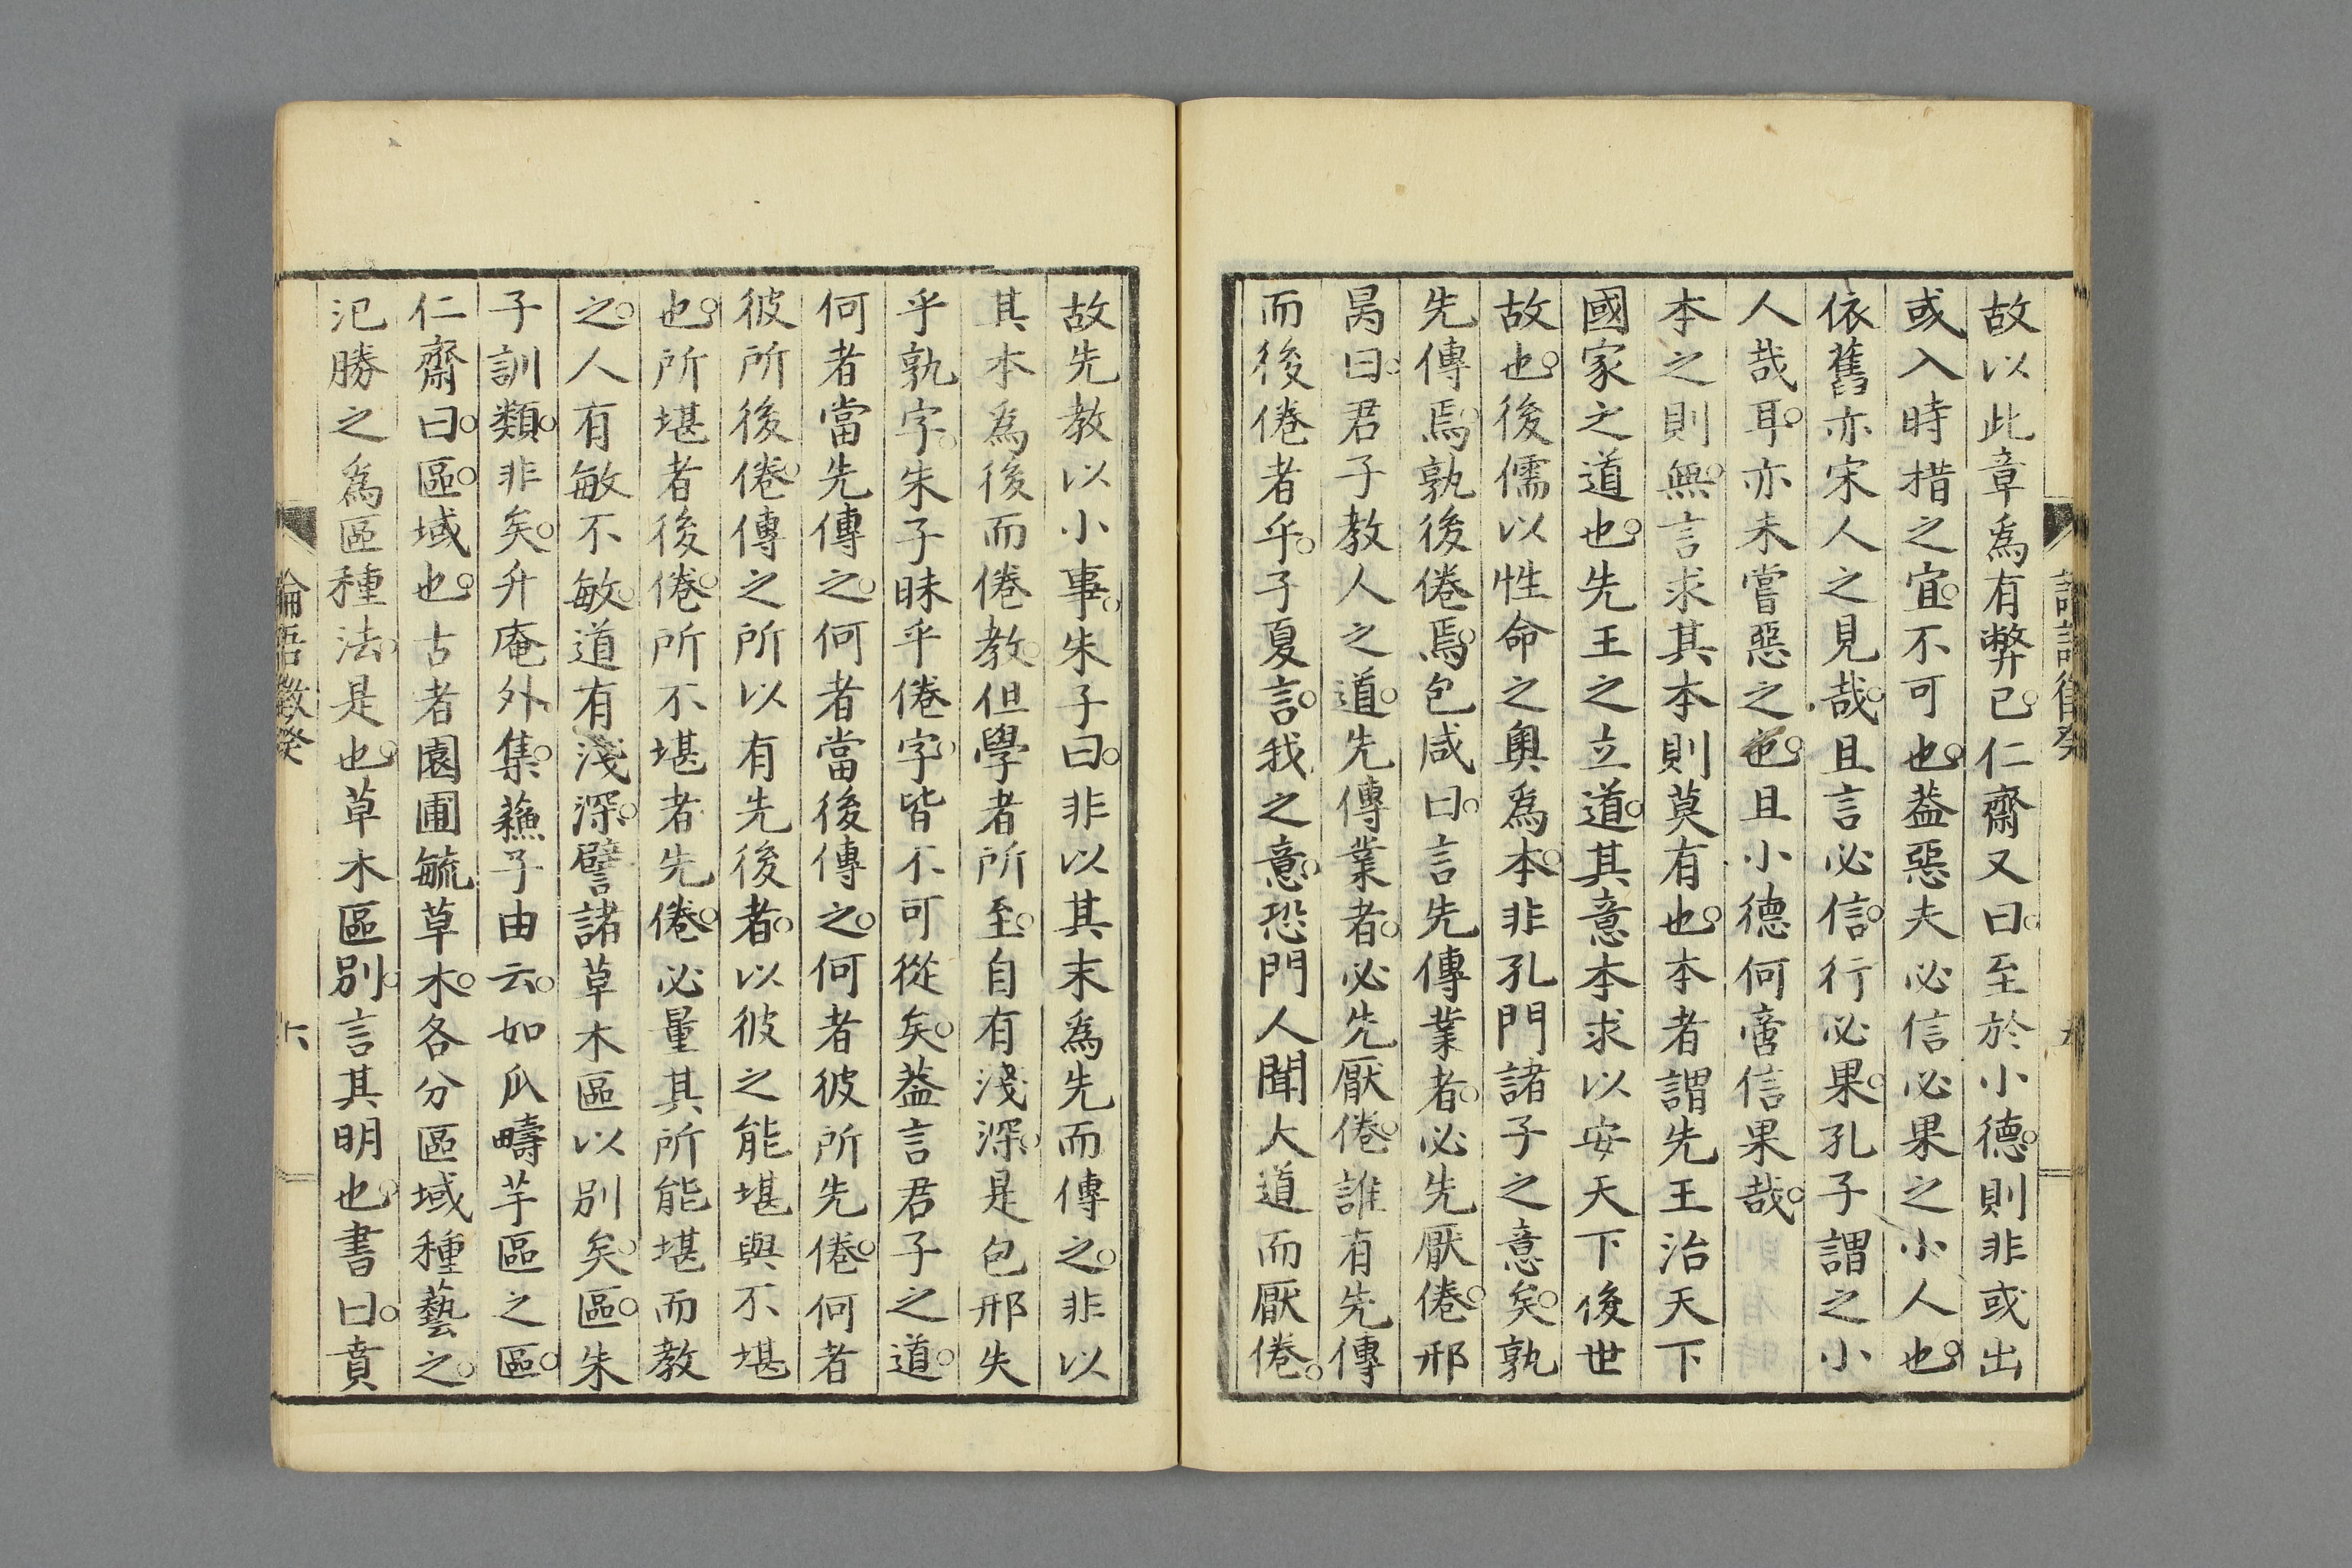 故以此章爲有弊已仁齋又曰至於小德則非或出
或入時措之宜不可也葢惡夫必信必果之小人也
依舊亦宋人之見哉且言必信行必果孔子謂之小
人哉耳亦未嘗惡之也且小德何啻信果哉
本之則無言求其本則莫有也本者謂先王治天下
國家之道也先王之立道其意本求以安天下後世
故也後儒以性命之奧爲本非孔門諸子之意矣孰
先傳焉孰後倦焉包咸曰言先傳業者必先厭倦邢
昺曰君子教人之道先傳業者必先厭倦誰有先傳
而後倦者乎子夏言我之意恐門人聞大道而厭倦
故先教以小事朱子曰非以其末爲先而傳之非以
其本爲後而倦教但學者所至自有淺深是包邢失
乎孰字朱子昧乎倦字皆不可從矣葢言君子之道
何者當先傳之何者當後傳之何者彼所先倦何者
彼所後倦傳之所以有先後者以彼之能堪與不堪
也所堪者後倦所不堪者先倦必量其所能堪而教
之人有敏不敏道有淺深譬諸草木區以別矣區朱
子訓類非矣升庵外集蘓子由云如瓜疇芋區之區
仁齋曰區域也古者園圃毓草木各分區域種藝之
氾勝之爲區種法是也草木區別言其明也書曰賁
論語徵癸
六